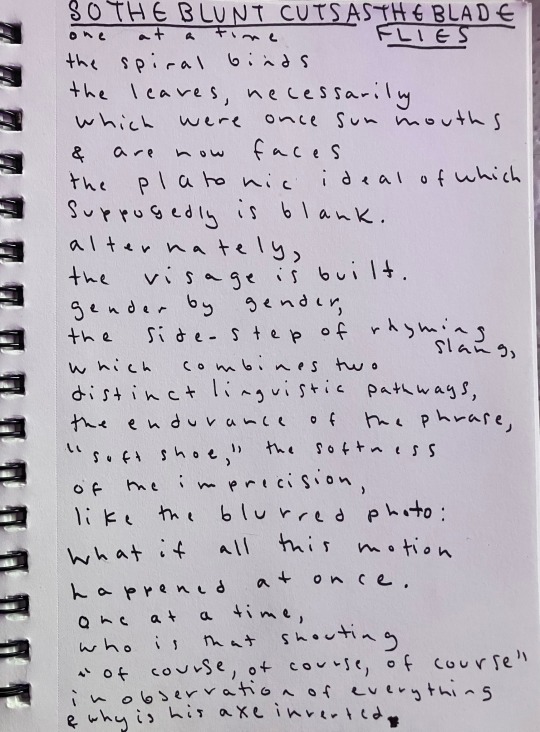 SO THE BLUNT CUTS AS THE BLADE
FLIES
one at a time
the spiral binds
the leaves, necessarily
which were once sun mouths
& are now faces
the platonic ideal of which
supposedly is blank.
alternately,
the visage is built.
gender by gender,
the side-step of rhyming
slang,
which combines two
distinct linguistic pathways,
the endurance of the phrase,
"soft shoe," the softness
of the imprecision,
like the blurred photo:
what if all this motion
happened at once.
one at a time,
who is that shouting
"of course, of course, of course"
in observation of everything
& why is his axe inverted.